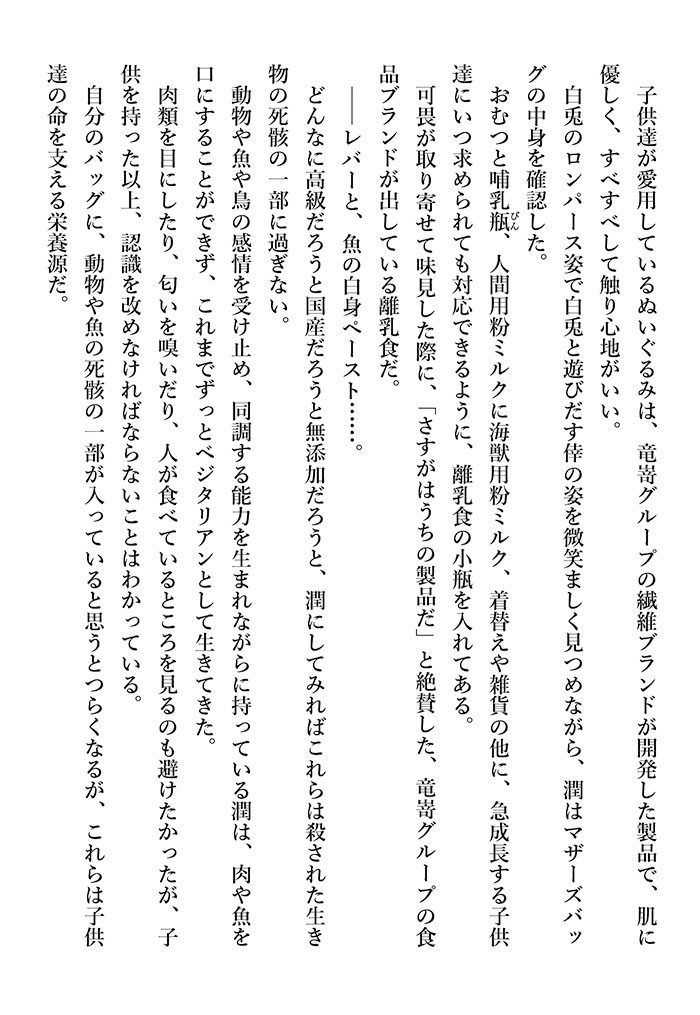 子供達が愛用しているぬいぐるみは、竜嵜グループの繊維ブランドが開発した製品で、肌に
優しく、すべすべして触り心地がいい。
　白兎のロンパース姿で白兎と遊びだす倅の姿を微笑ましく見つめながら、潤はマザーズバッ
グの中身を確認した。
　おむつと哺乳瓶、人間用粉ミルクに海獣用粉ミルク、着替えや雑貨の他に、急成長する子供
達にいつ求められても対応できるように、離乳食の小瓶を入れてある。
　可畏が取り寄せて味見した際に、「さすがはうちの製品だ」と絶賛した、竜嵜グループの食
品ブランドが出している離乳食だ。
　――レバーと、魚の白身ペースト……。
　どんなに高級だろうと国産だろうと無添加だろうと、潤にしてみればこれらは殺された生き
物の死骸の一部に過ぎない。
　動物や魚や鳥の感情を受け止め、同調する能力を生まれながらに持っている潤は、肉や魚を
口にすることができず、これまでずっとベジタリアンとして生きてきた。
　肉類を目にしたり、匂いを嗅いだり、人が食べているところを見るのも避けたかったが、子
供を持った以上、認識を改めなければならないことはわかっている。
　自分のバッグに、動物や魚の死骸の一部が入っていると思うとつらくなるが、これらは子供
達の命を支える栄養源だ。
びん